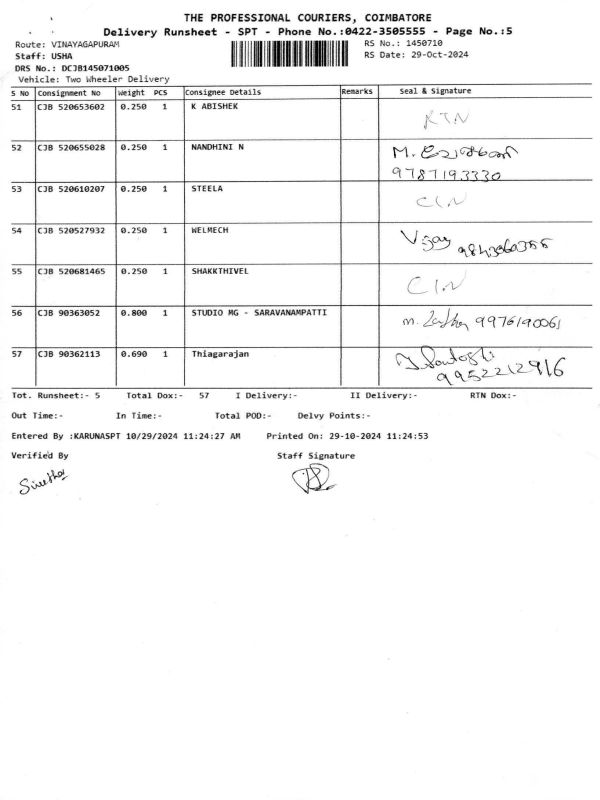 THE PROFESSIONAL COURIERS, COIMBATORE
Delivery Runsheet - SPT - Phone No.:0422-3505555 - Page No.:5
Route: VINAYAGAPURAM RS No.: 1450710
Staff: USHA RS Date: 29-Oct-2024
DRS No.: DCJB145071005
Vehicle: Two Wheeler Delivery
S No Consignment No Weight PCS Consignee Details Remarks Seal & Signature
51 CJB 520653602 0.250 1 K ABISHEK RTN
52 CJB 520655028 0.250 1 NANDHINI N M.
9787193330
53 CJB 520610207 0.250 1 STEELA CIN
54 CJB 520527932 0.250 1 WELMECH Vijay
55 CJB 520681465 0.250 1 SHAKKTHIVEL CIN
56 CJB 90363052 0.800 1 STUDIO MG - SARAVANAMPATTI m. 9976190061
57 CJB 90362113 0.690 1 Thiagarajan
9952212916
Tot. Runsheet:- 5 Total Dox:- 57 I Delivery:- II Delivery:- RTN Dox:-
Out Time:- In Time:- Total POD:- Delvy Points:-
Entered By :KARUNASPT 10/29/2024 11:24:27 AM Printed On: 29-10-2024 11:24:53
Verified By Staff Signature